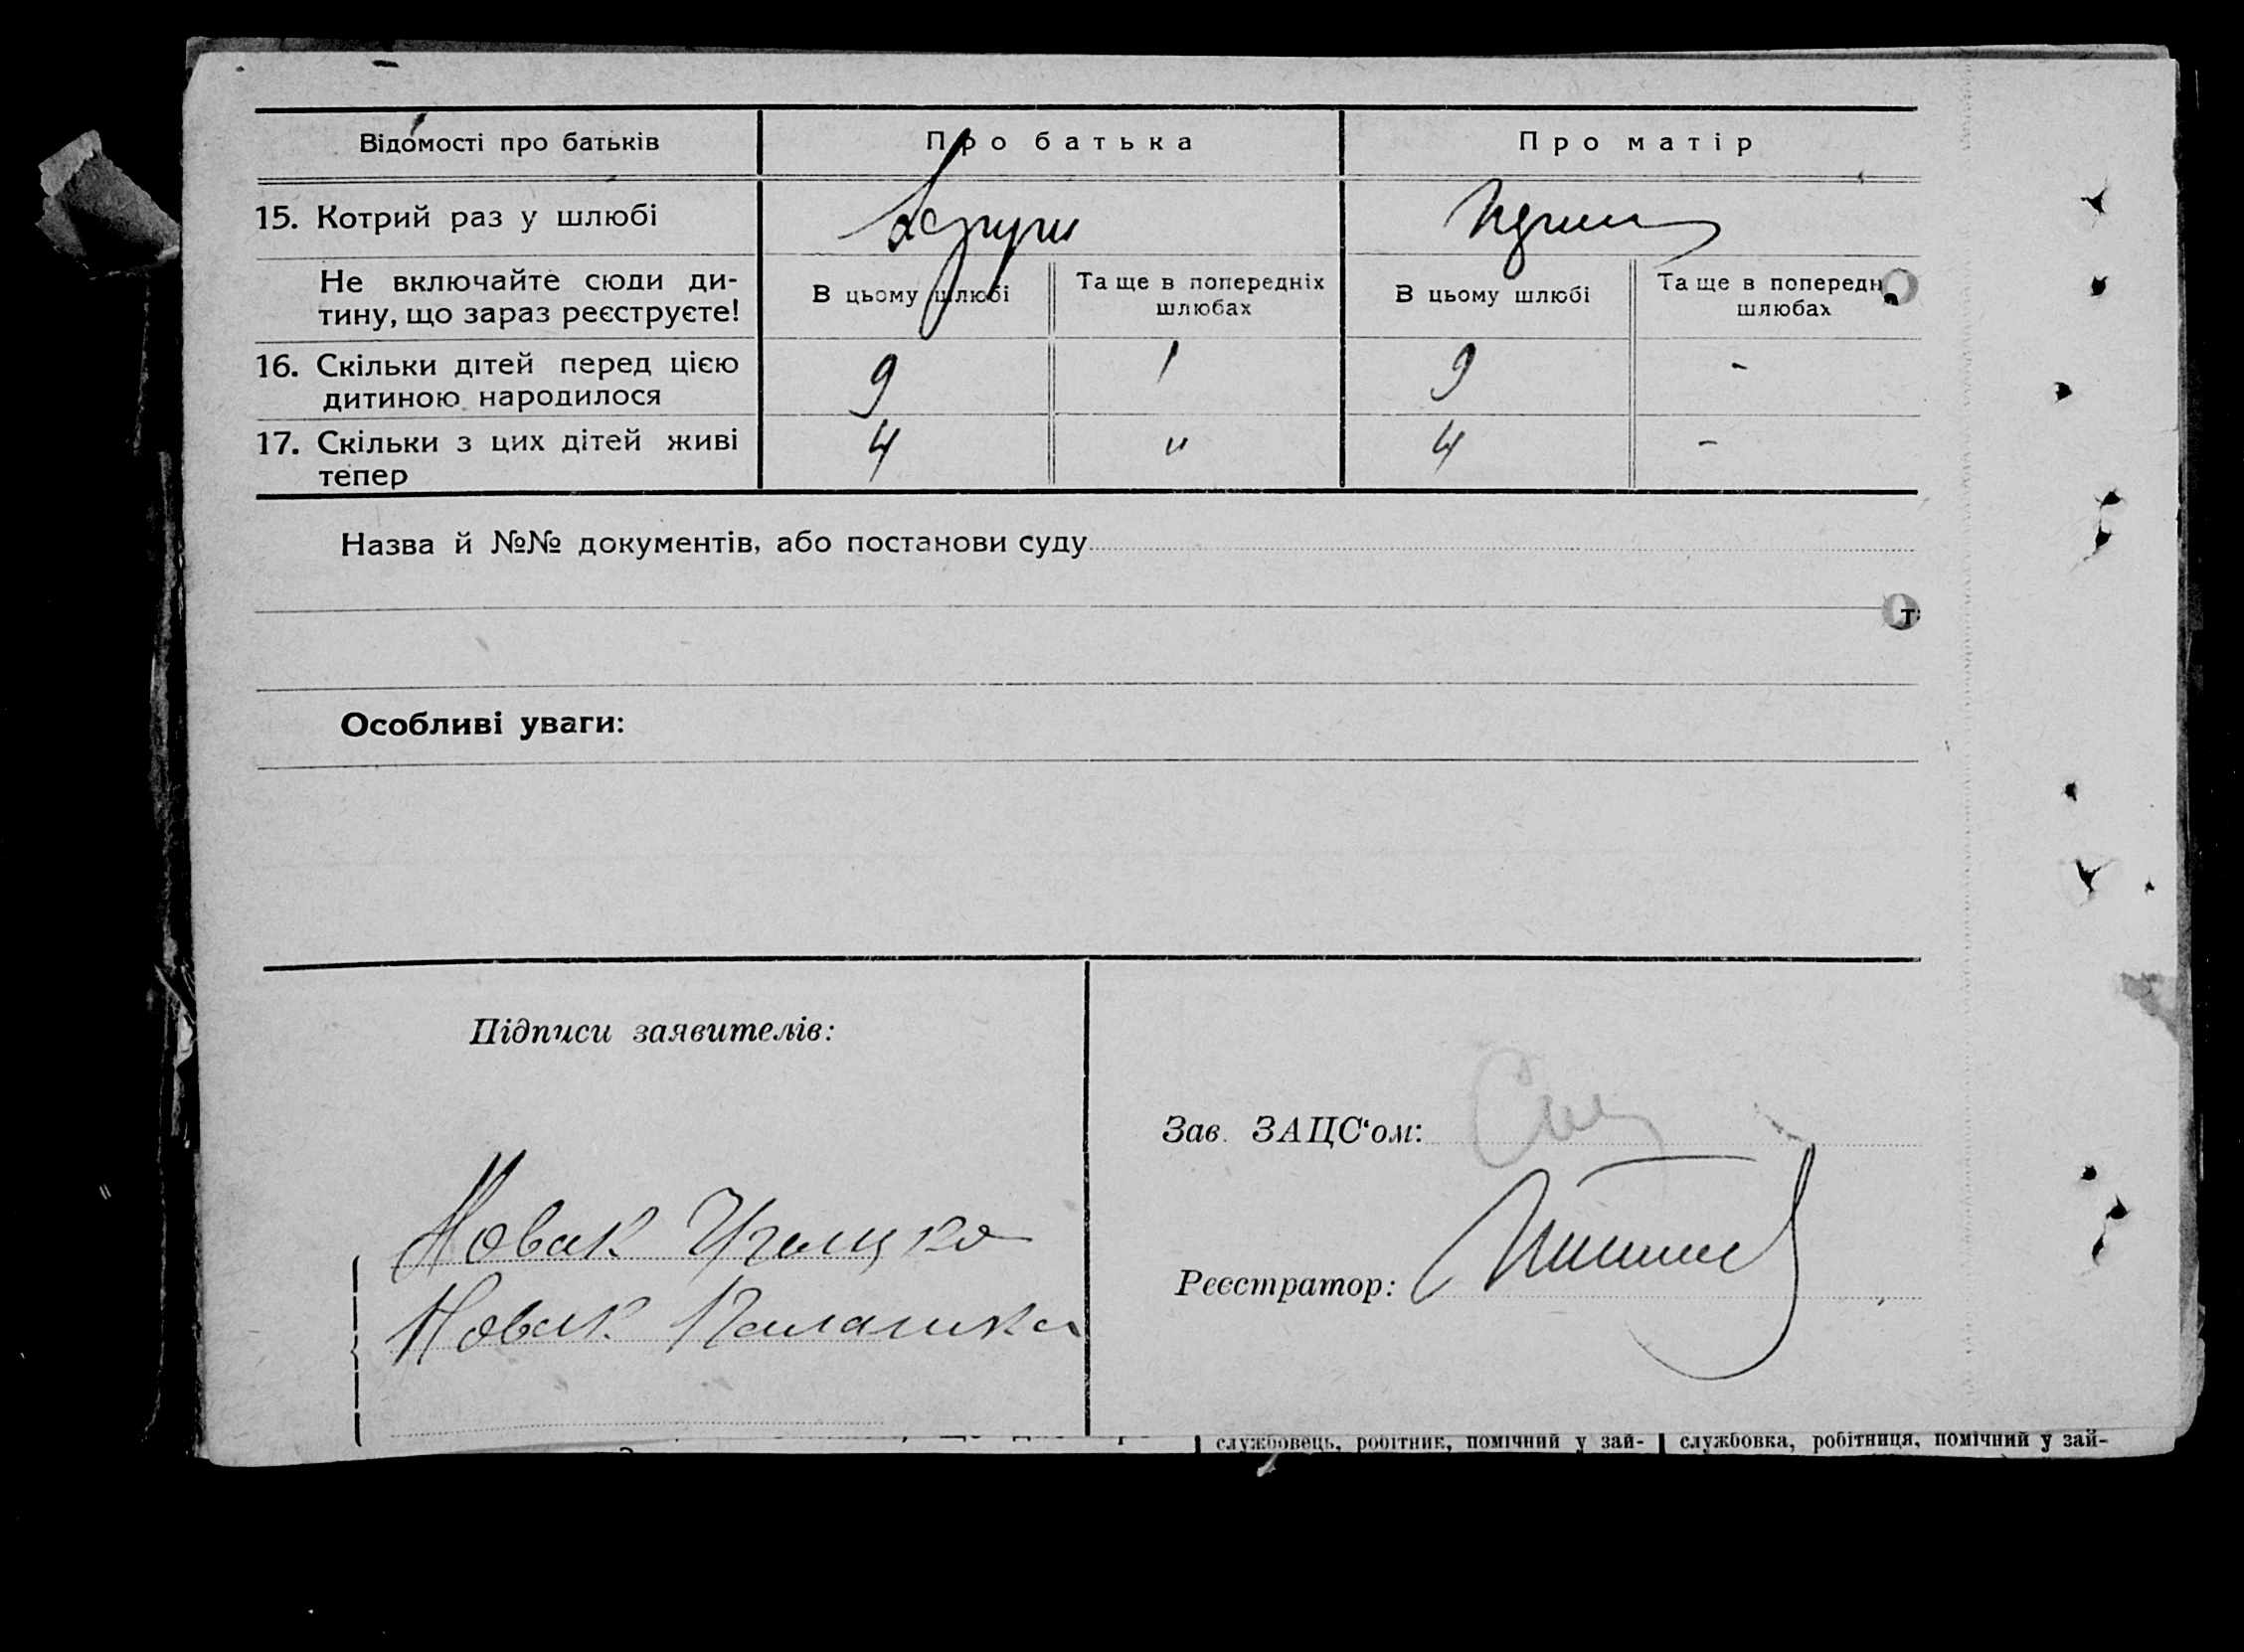 Відомості про батьків
Про батька
Про матір
15. Котрий раз у шлюбі
Не включайте сюди ди-
тину, що зараз реєструєте!
В цьому шлюбі
Та ще в попередніх
шлюбах
В цьому шлюбі
Та ще в попередн
шлюбах
16. Скільки дітей перед цією
дитиною народилося
9
1
9
-
17. Скільки з цих дітей живі
тепер
4
"
4
-
Назва й №№ документів, або постанови суду
Особливі уваги:
Підписи заявителів:
Зав. ЗАЦС'ом:
Новак
Новак Палашка
Реєстратор:
службовець, робітник, помічний у зай-
службовка, робітниця, помічний у зай-